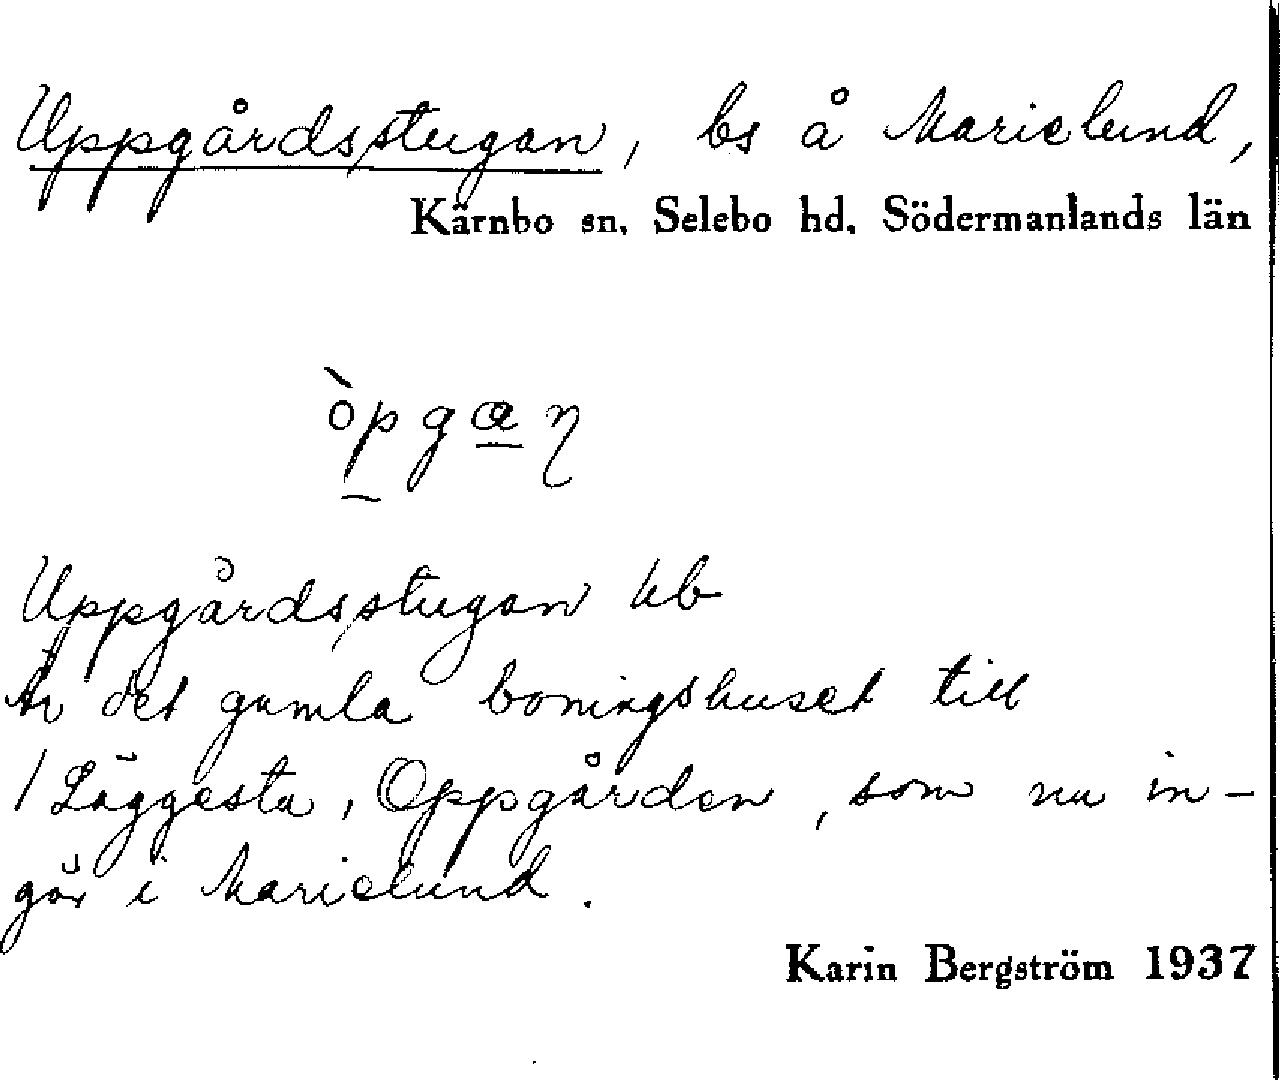 Uppgårdsstugan, bs å Marielund,
Kärnbo sn. Selebo hd. Södermanlands län
òpgœŋ
Uppgårdsstugan kb
Är det gamla boningshuset till
1 Läggesta, Oppgården, som nu in-
går i Marielund.
Karin Bergström 1937